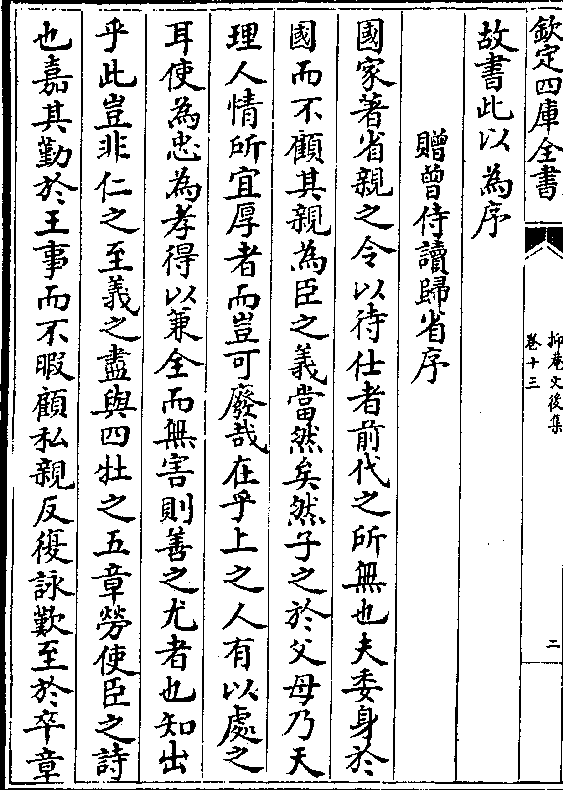 欽定四庫全書
抑菴文後集
卷十三
二
故書此以為序
贈曾侍讀歸省序
國家著省親之令以待仕者前代之所無也夫委身於
國而不顧其親為臣之義當然矣然子之於父母乃天
理人情所宜厚者而豈可廢哉在乎上之人有以處之
耳使為忠為孝得以兼全而無害則善之尤者也知出
乎此豈非仁之至義之盡與四牡之五章勞使臣之詩
也嘉其勤於王事而不暇顧私親反復詠歎至於卒章